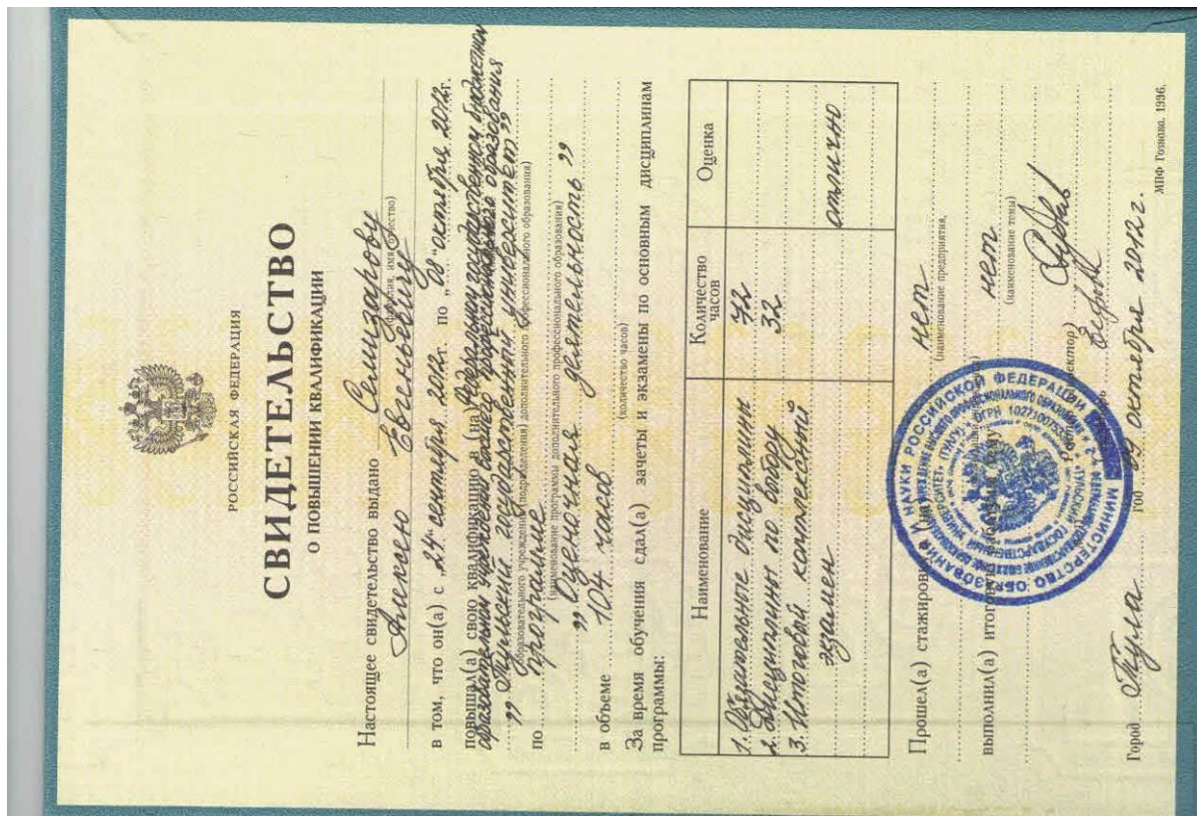 РОССИЙСКАЯ ФЕДЕРАЦИЯ
СВИДЕТЕЛЬСТВО
О ПОВЫШЕНИИ КВАЛИФИКАЦИИ
Настоящее свидетельство выдано Семизарову
Алексею Евгеньевичу
(фамилия, имя, отчество)
в том, что он(а) с „24“ сентября 2012г. по „ “ октября 2012г.
повышал(а) свою квалификацию в (на) Федеральном государственном бюджетном
образовательном учреждении высшего профессионального образования
„Тульский государственный университет“
(образовательного учреждения (подразделения) дополнительного профессионального образования)
по программе
(наименование программы дополнительного профессионального образования)
„Оценочная деятельность“
в объеме 104 часов
(количество часов)
За время обучения сдал(а) зачеты и экзамены по основным дисциплинам
программы:
Наименование Количество часов Оценка
1. Обязательные дисциплины 72
2. Дисциплины по выбору 32
3. Итоговый комплексный
экзамен отлично
Прошел(а) стажировку в (на) нет
(наименование предприятия,
выполнил(а) итоговую работу на тему нет
(наименование темы)
Ректор (директор)
МИНИСТЕРСТВО ОБРАЗОВАНИЯ И НАУКИ РОССИЙСКОЙ ФЕДЕРАЦИИ
Город Тула год октября 2012г.
МПФ Гознака. 1996.